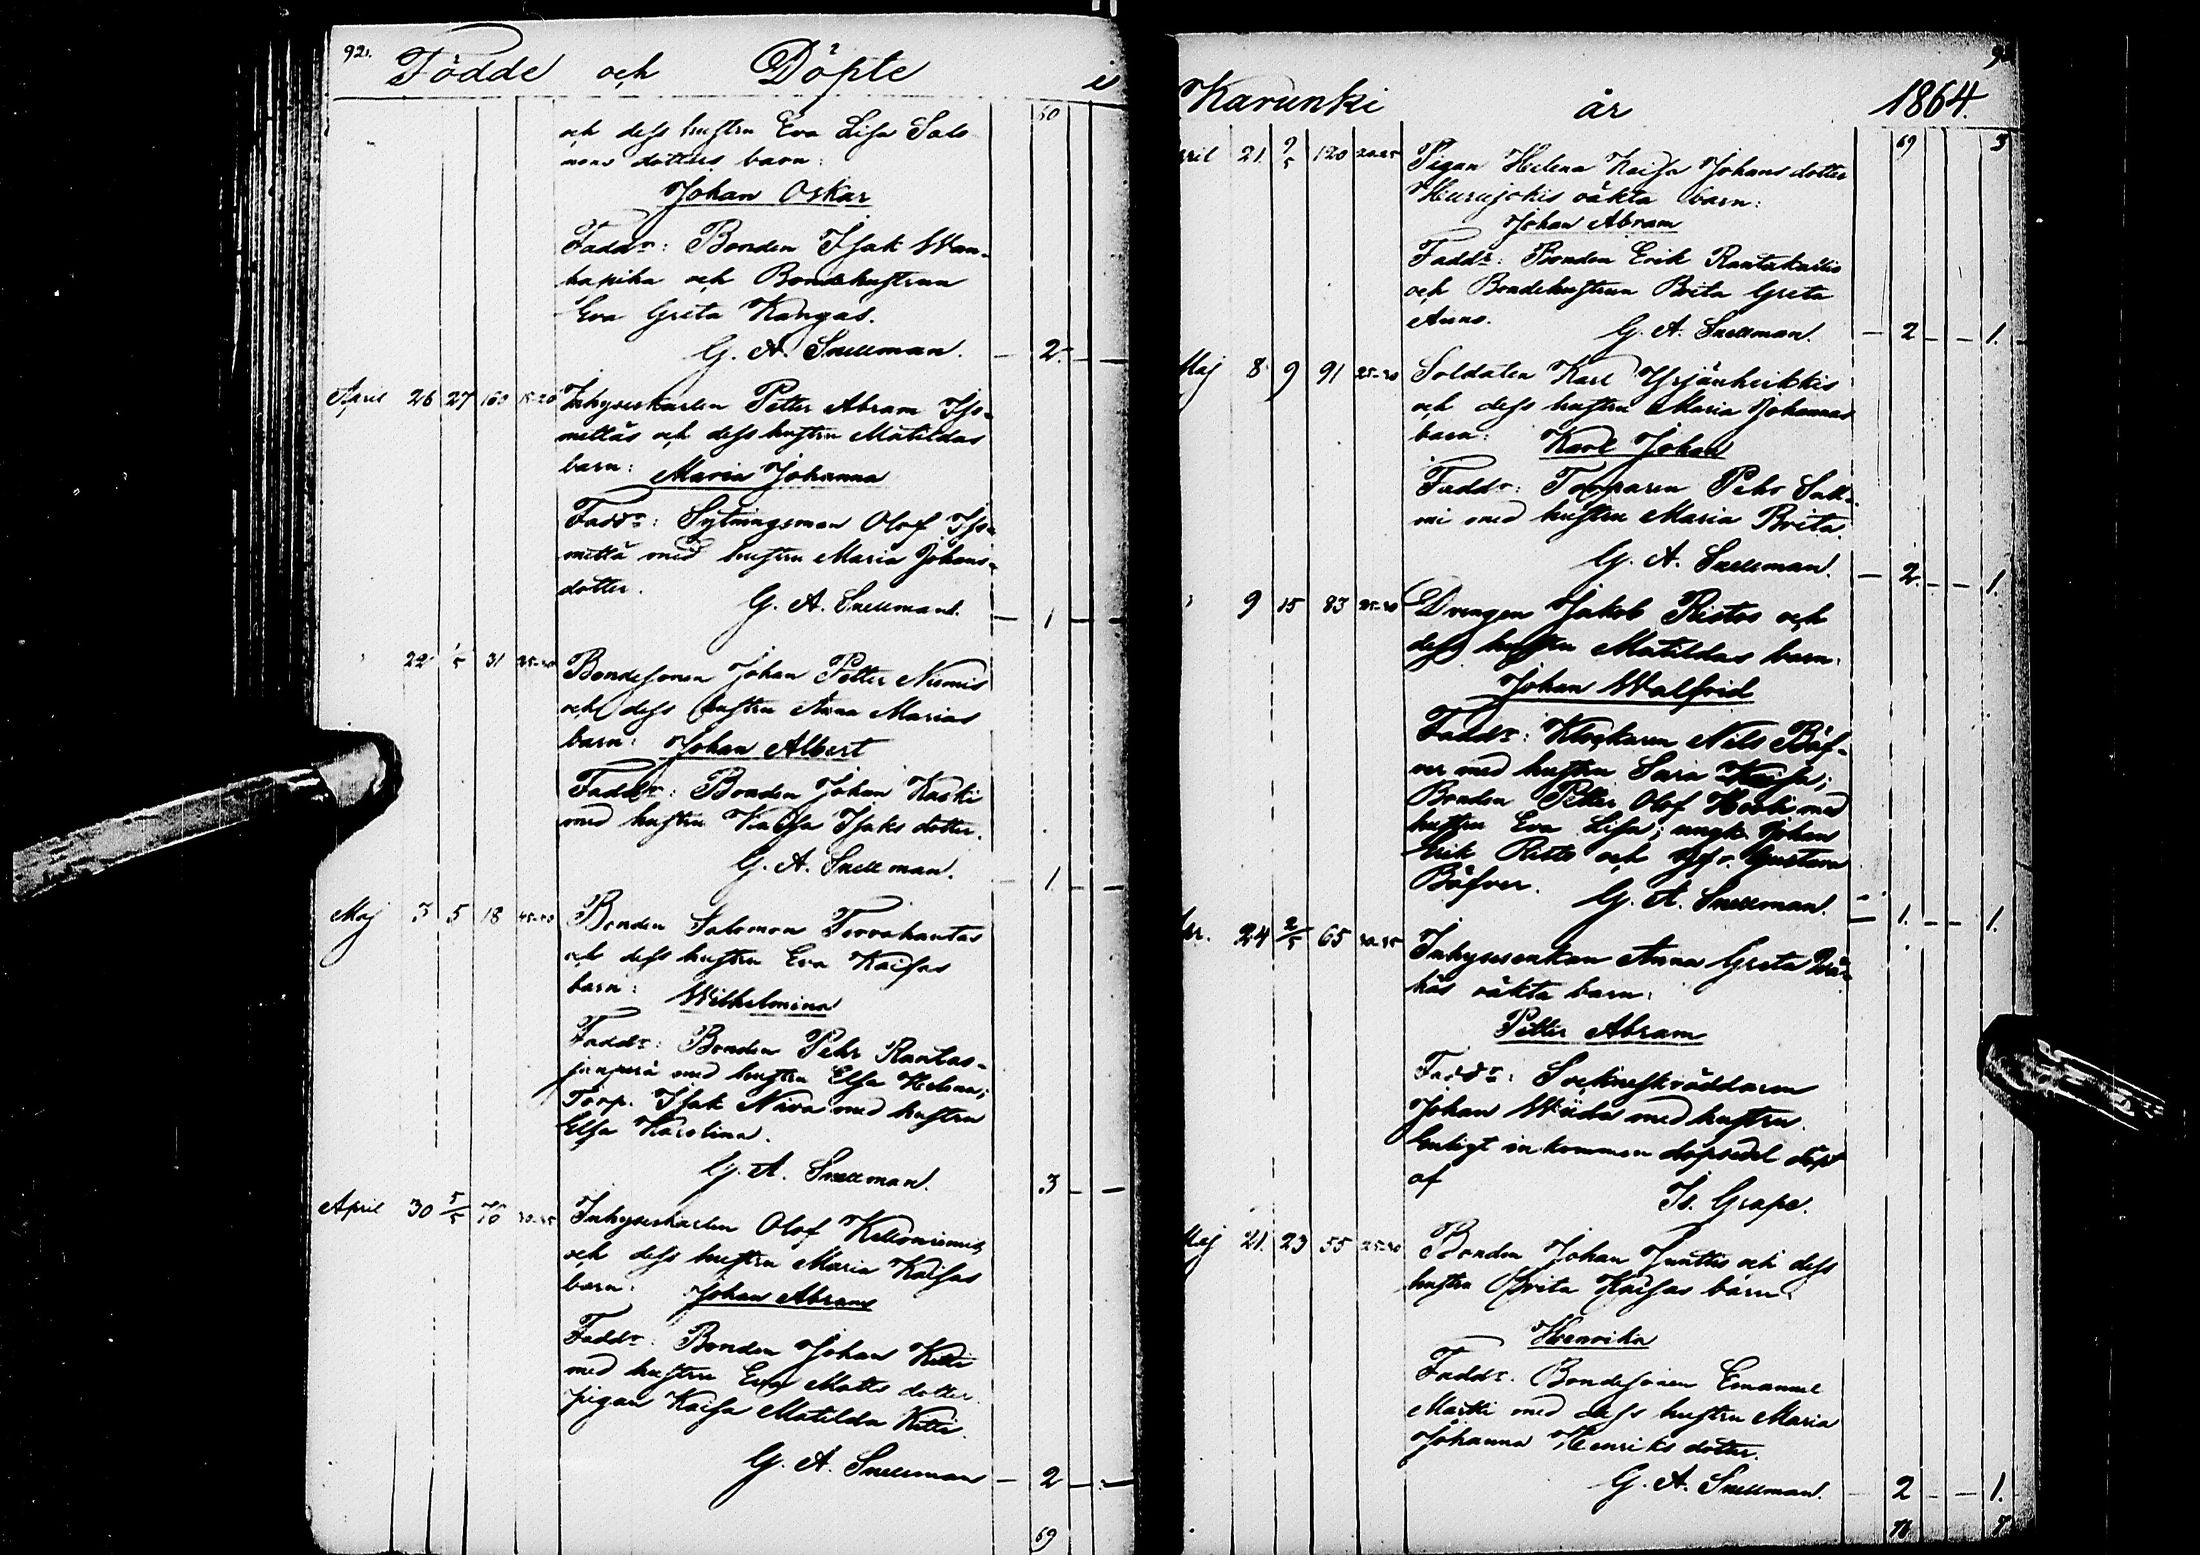 92.
Födde och Döpte i
60
och dess hustru Eva Lisa Salo
mons dotters barn:
Johan Oskar
Faddr: Bonden Isak Wan-
hapiha och Bondehustrun
Eva Greta Kangas.
G. A. Snellman. — 2. —
April 26 27 160 15-20 Inhyseskarlen Petter Abram Iso-
mettäs och dess hustru Matildas
barn: Maria Johanna
Faddr: Sytningsman Olof Iso-
mettä med hustru Maria Johans-
dotter.
G. A. Snellman. — 1 —
" 22 1/5 31 25-30 Bondesonen Johan Petter Niemis
och dess hustru Anna Marias
barn: Johan Albert
Faddr: Bonden Johan Kaski
med hustru Kaisa Isaks dotter.
G. A. Snellman. — 1. —
Maj 3 5 18 45-50 Bonden Salomon
och dess hustru Eva Kaisas
barn: Wilhelmina
Faddr: Bonden Pehr Rantas-
med hustru Elsa Helena;
Torp. Isak Niva med hustru
Elsa Karolina.
G. A. Snellman. 3 — —
April 30 5/5 76 30-35 Inhyseskarlen Olof Kelloniemis
och dess hustru Maria Kaisas
barn: Johan Abram
Faddr: Bonden Johan Kitti
med hustru Eva Matts dotter
pigan Kaisa Matilda Kitti.
G. A. Snellman — 2 —
69
Karunki år 1864.
69 3
April 21. 2/5 120 20-25 Pigan Helena Kaisa Johans dotter
Hurujokis oäkta barn:
Johan Abram
Faddr: Bonden Erik Rantakallio
och Bondehustrun Brita Greta
Anno.
G. A. Snellman. — 2 — — 1.
Maj 8 9 91 25-30 Soldaten Karl Yrjänheikkis
och dess hustru Maria Johannas
barn: Karl Johan
Faddr: Torparen Pehr Salt-
mi med hustru Maria Brita.
G. A. Snellman. — 2. — — 1.
" 9 15 83 25-30 Drengen Jakob Ristos och
dess hustru Matildas barn:
Johan Walfrid
Faddr: Klockaren Nils Bäf-
ver med hustru Sara Kajsa;
Bonden Petter Olof med
hustru Eva Lisa; ungk. Johan
Erik Risto och Jgfr. Gustava
Bäfver. G. A. Snellman. — 1. — — 1.
Apr. 24 2/5 65 30-35 Inhysesenkan Anna Greta Wä-
häs oäkta barn:
Petter Abram
Faddr: Sockneskräddaren
Johan Wiida med hustru.
Enligt inkommen dopsedel döpt
af Is. Grape.
Maj 21. 23 55 25-30 Bonden Johan Junttis och dess
hustru Brita Kaisas barn:
Henrika
Faddr. Bondesonen Emanuel
Martti med dess hustru Maria
Johanna Henriks dotter.
G. A. Snellman. — 2 — — 1.
76 7